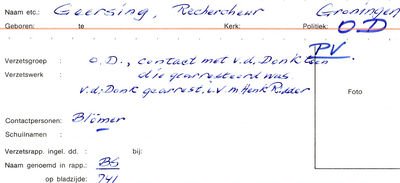 Naam etc.: Geersing, Rechercheur Groningen
Geboren: te Kerk: Politiek: OD
PV
Verzetsgroep : O.D., contact met v.d. Donk toen
Verzetswerk : die gearresteerd was
v.d. Donk gearrest. i.v.m Henk Ridder
Foto
Contactpersonen: Blömer
Schuilnamen :
Verzetsrapp. ingel. dd. : bij:
Naam genoemd in rapp.: BS
op bladzijde: 741